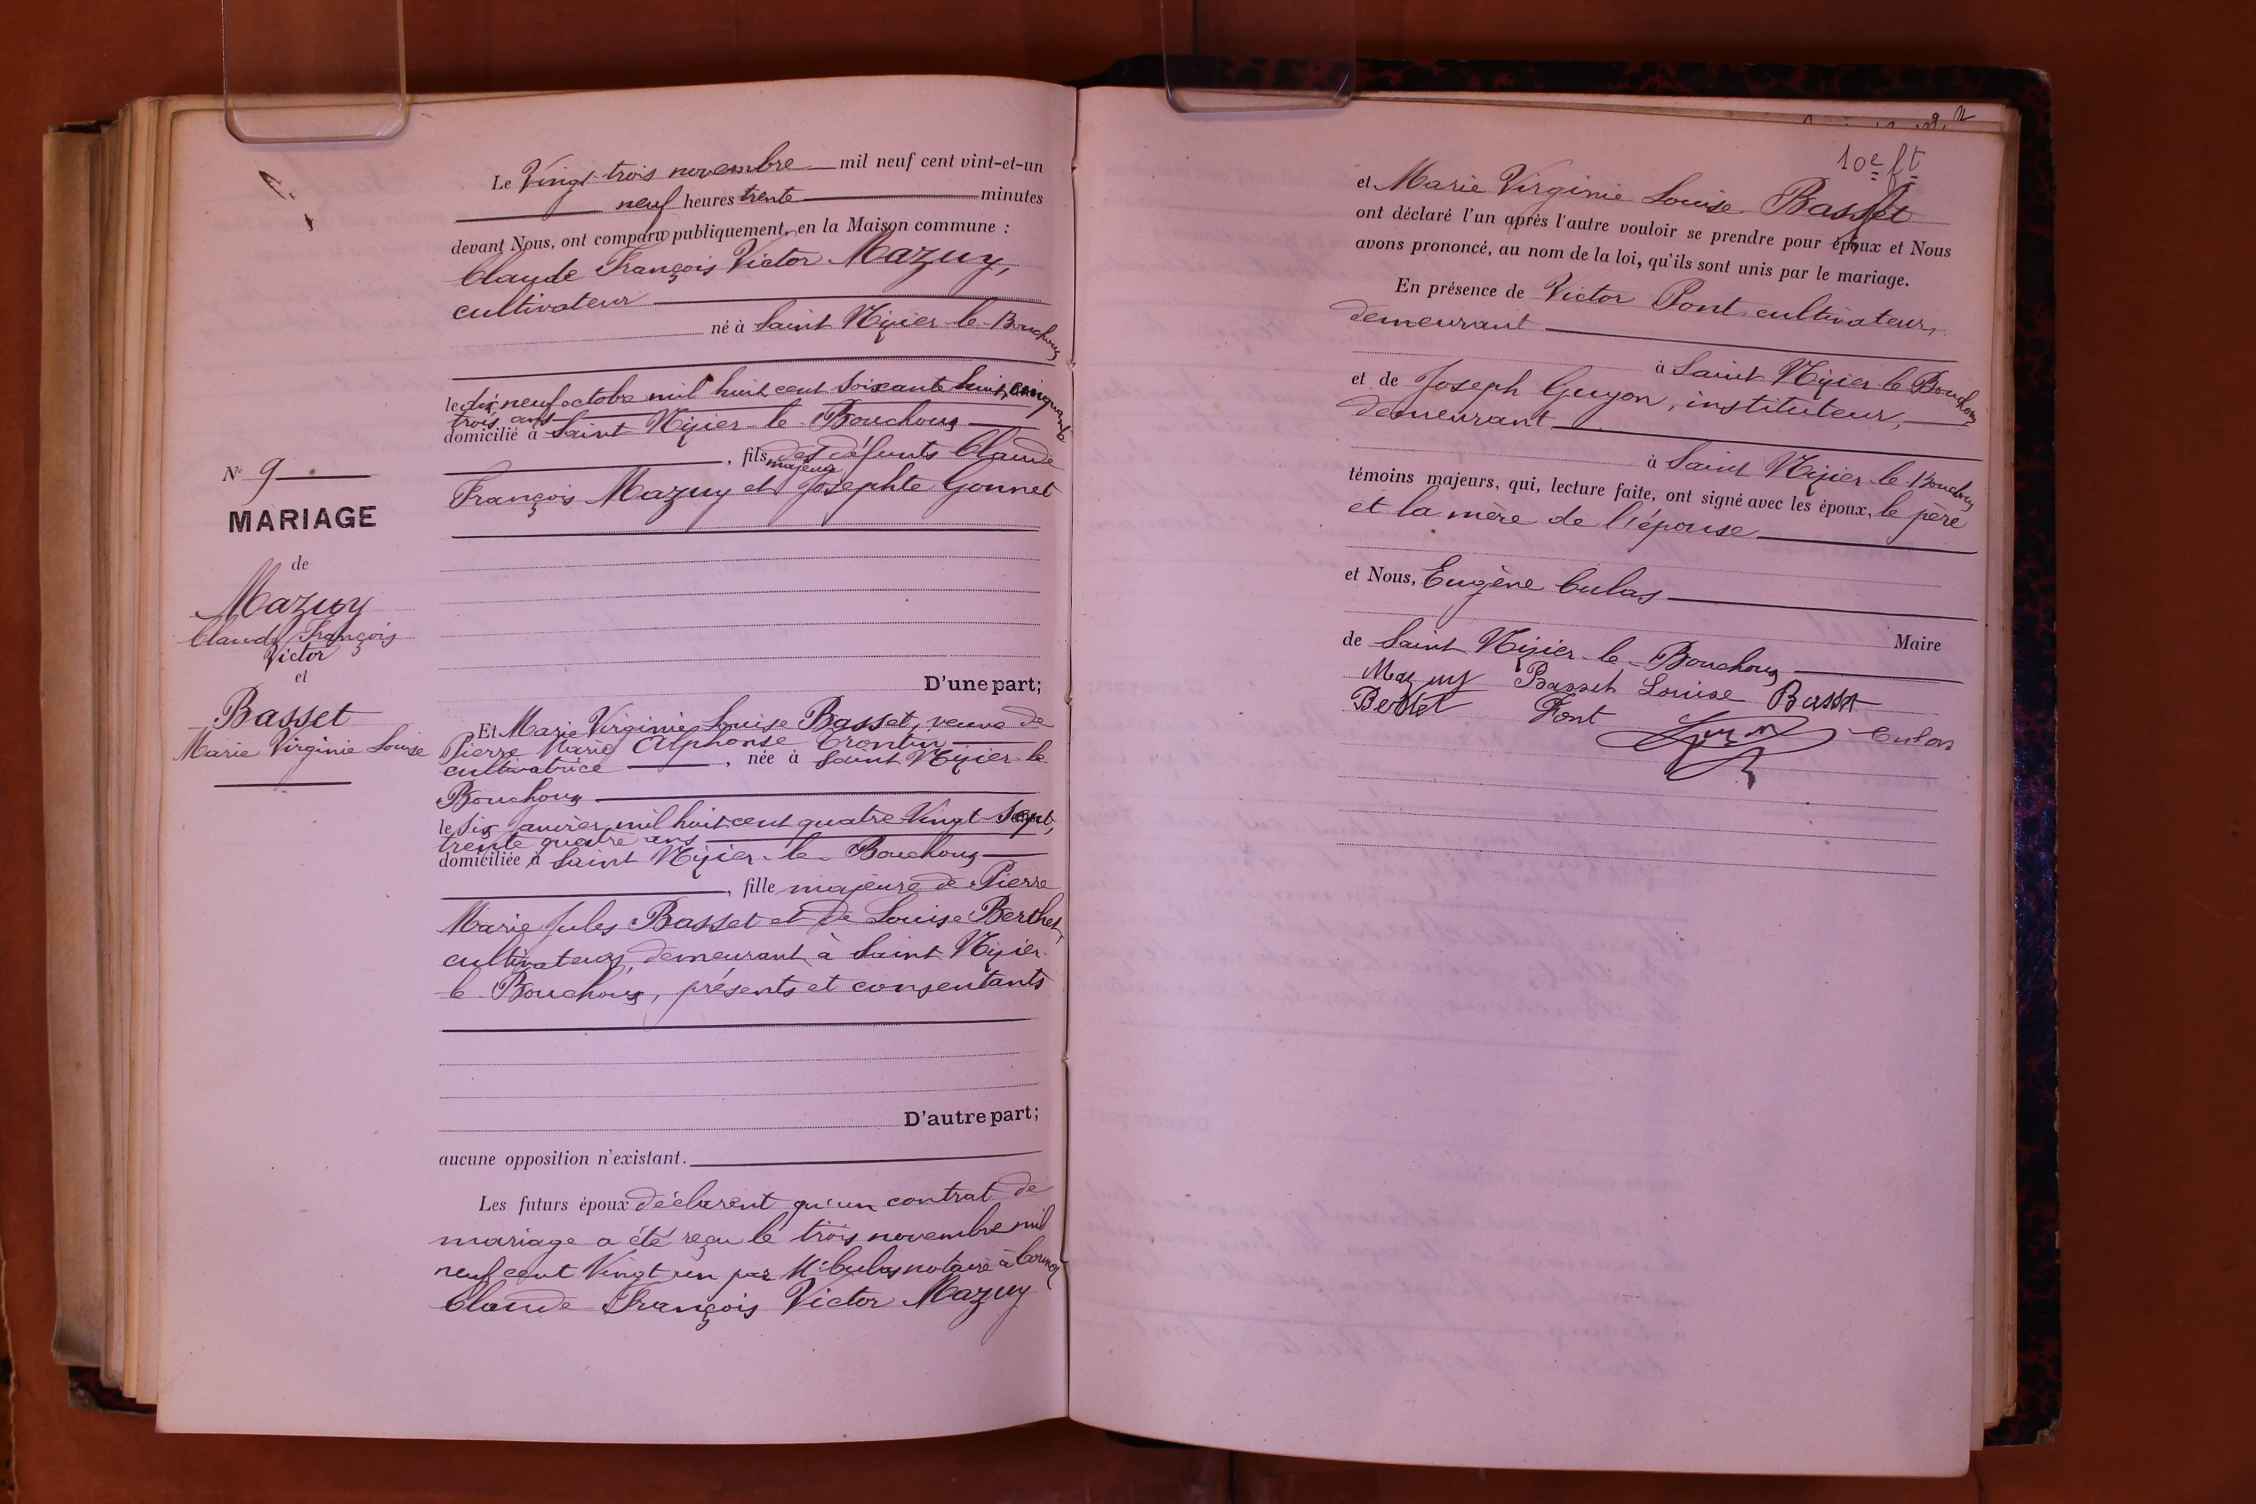 Le Vingt-trois novembre mil neuf cent vint-et-un
neuf heures trente minutes
devant Nous, ont comparu publiquement, en la Maison commune :
Claude François Victor Mazuy,
cultivateur
né à Saint Nizier-le-Bouchoux
le dix neuf octobre mil huit cent soixante huit, cinquante
trois ans
domicilié à Saint Nizier-le-Bouchoux
, fils des défunts Claude
majeur
François Mazuy et Josephte Gonnet
N° 9
MARIAGE
de
Mazuy
Claude François
Victor
et
Basset
Marie Virginie Louise
D'une part;
Et Marie Virginie Louise Basset, veuve de
Pierre Marie Alphonse
cultivatrice , née à Saint Nizier-le
Bouchoux
le six janvier mil huit cent quatre Vingt Sept,
trente quatre ans
domiciliée à Saint Nizier-le-Bouchoux
, fille majeure de Pierre
Marie Jules Basset et de Louise Berthet,
cultivateurs, demeurant à Saint Nizier-
le-Bouchoux, présents et consentants
D'autre part;
aucune opposition n'existant.
Les futurs époux déclarent qu'un contrat de
mariage a été reçu le trois novembre mil
neuf cent Vingt un par Me Culas notaire à Cormoz
Claude François Victor Mazuy
10e ft
et Marie Virginie Louise Basset
ont déclaré l'un après l'autre vouloir se prendre pour époux et Nous
avons prononcé, au nom de la loi, qu'ils sont unis par le mariage.
En présence de Victor Pont cultivateur,
demeurant
à Saint Nizier-le-Bouchoux
et de Joseph Guyon, instituteur,
demeurant
à Saint Nizier-le-Bouchoux
témoins majeurs, qui, lecture faite, ont signé avec les époux, le père
et la mère de l'épouse
et Nous, Eugène Culas
Maire
de Saint Nizier-le-Bouchoux
Mazuy Basset Louise Basset
Bertet Pont Culas